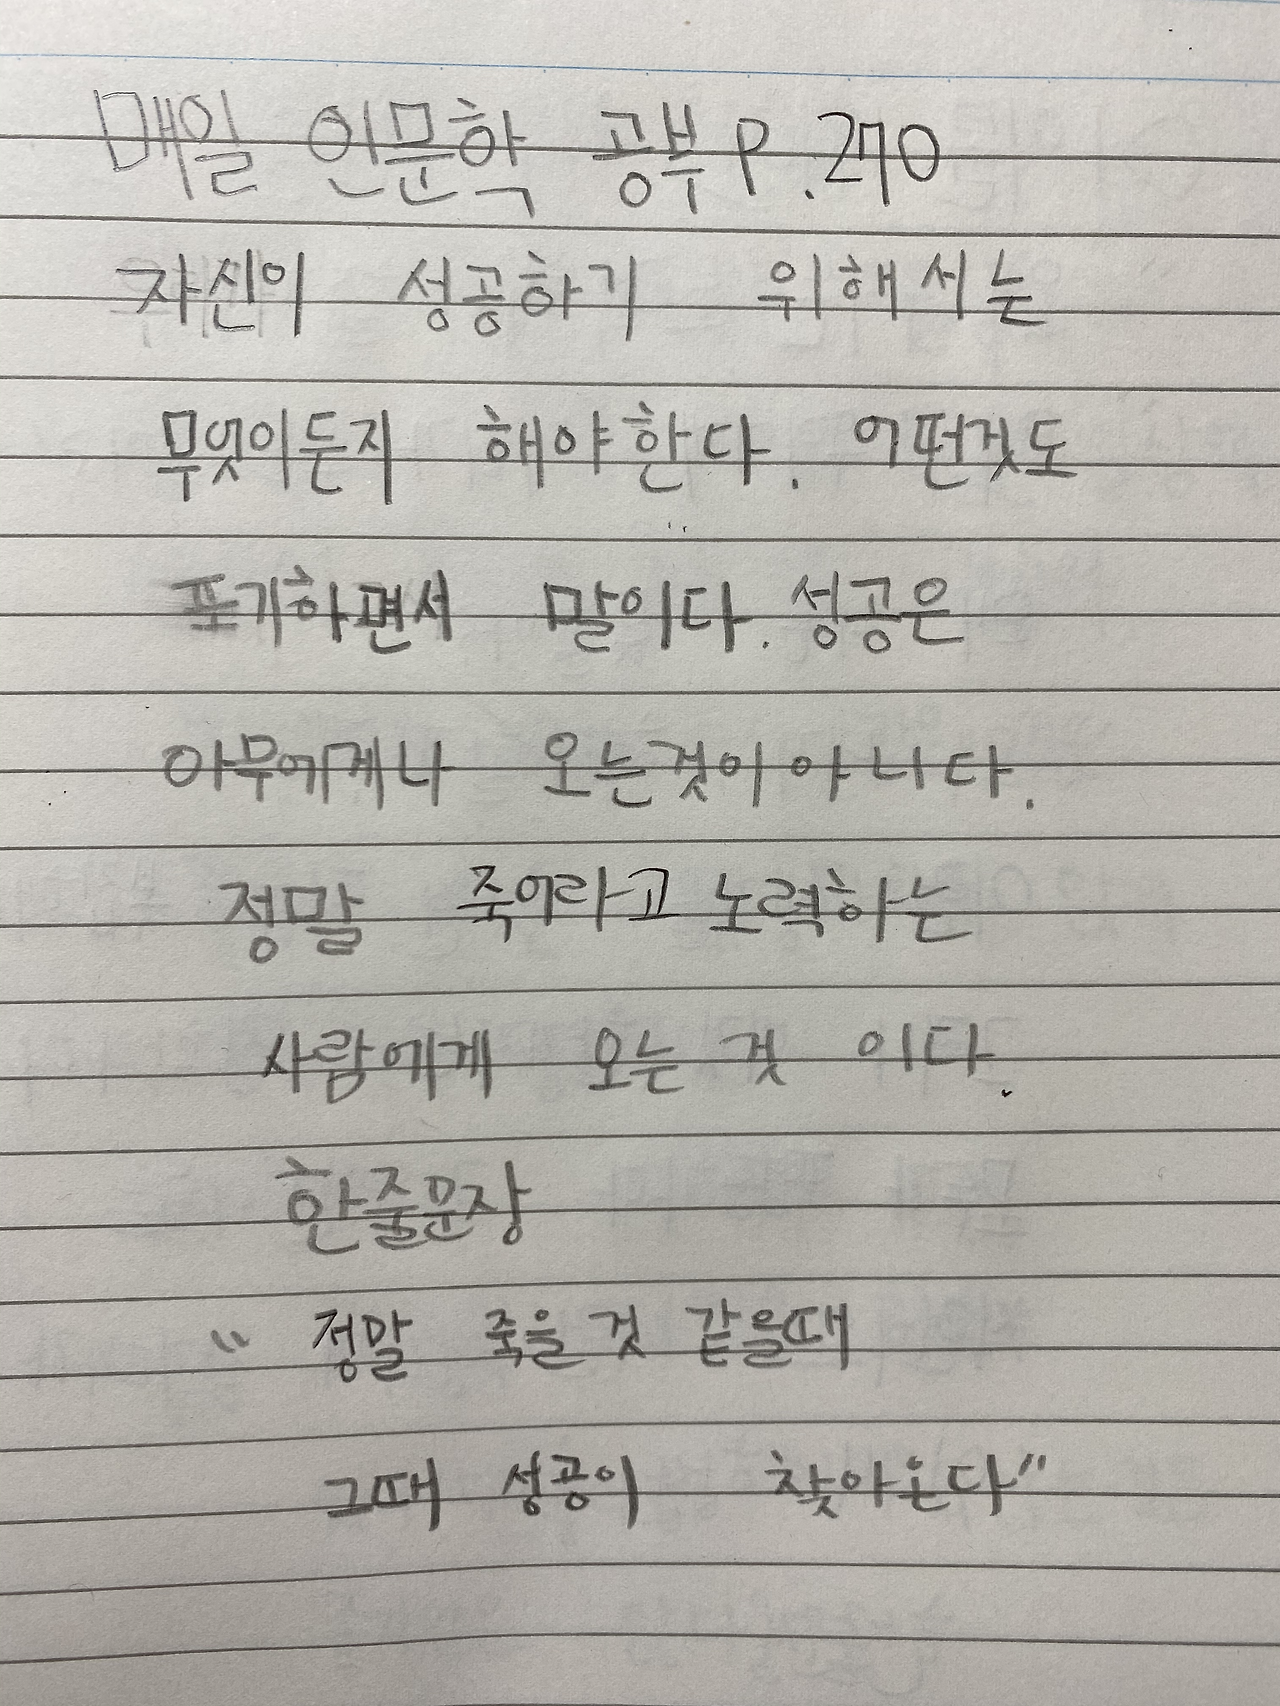 매일 인문학 공부 P.270
자신이 성공하기 위해서는
무엇이든지 해야한다. 어떤것도
포기하면서 말이다. 성공은
아무에게나 오는것이 아니다.
정말 죽어라고 노력하는
사람에게 오는 것 이다.
한줄문장
"정말 죽을 것 같을때
그때 성공이 찾아온다"